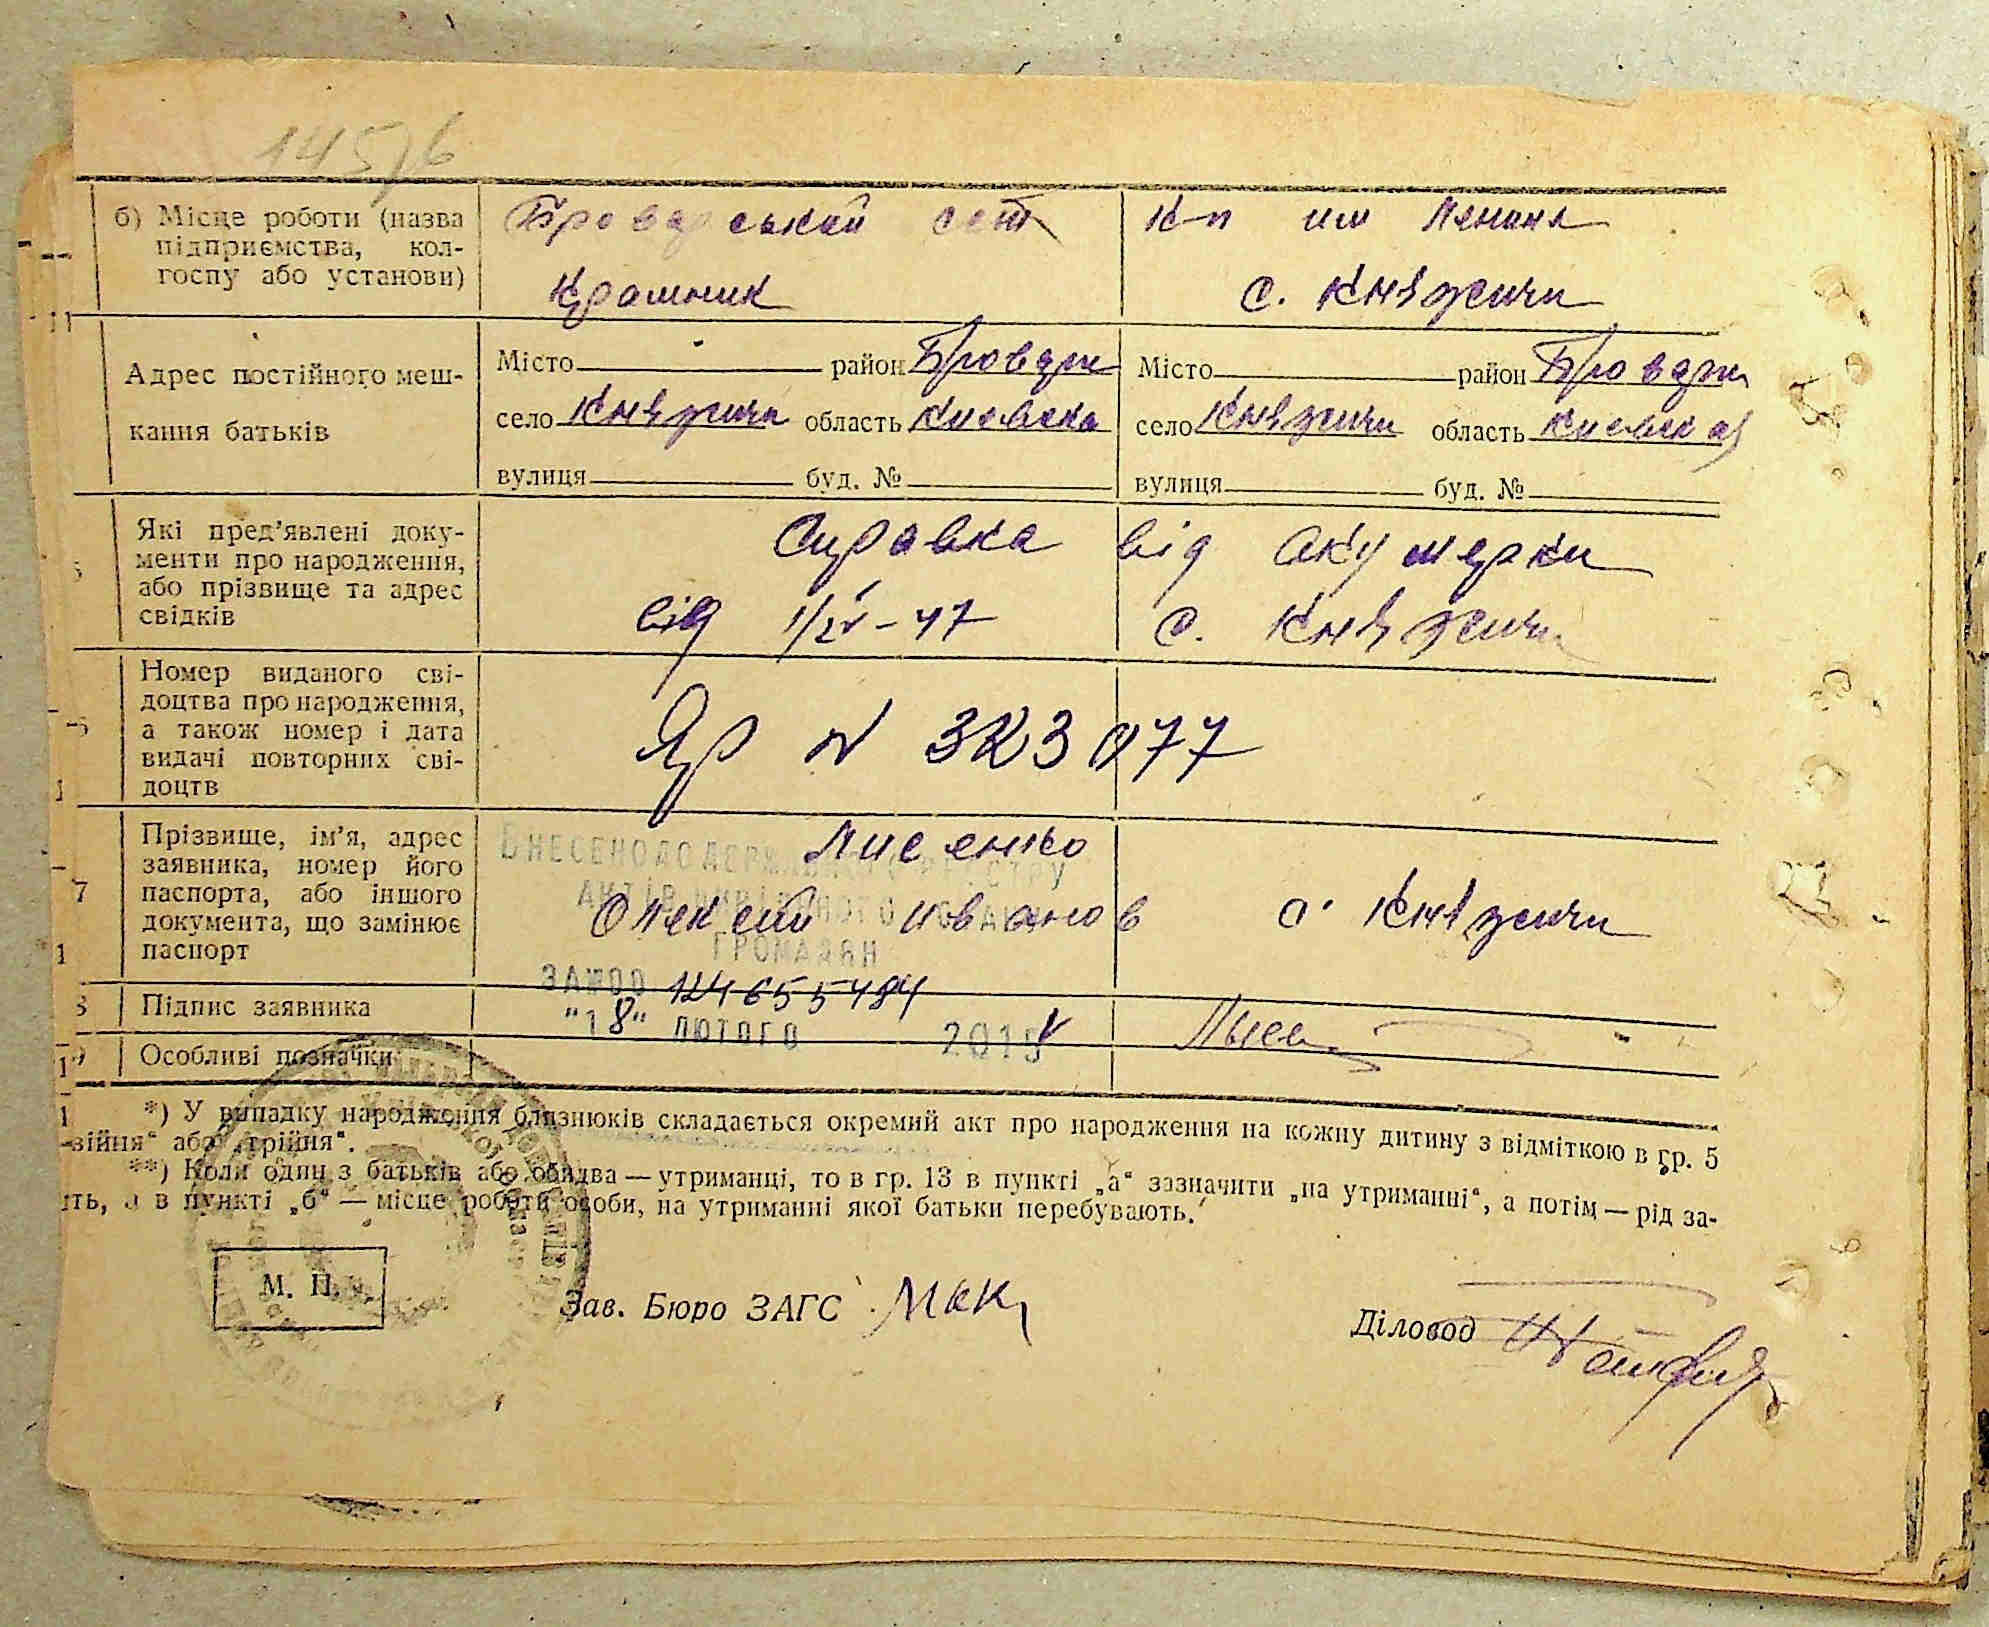 145/6
б) Місце роботи (назва Броварський к-п им Ленина
підприємства, кол-
госпу або установи) Крамник с. Княжичи
Адрес постійного меш- Місто район Бровари Місто район Бровари
кання батьків село Княжичи область Киевска село Княжичи область Киевская
вулиця буд. № вулиця буд. №
Які пред'явлені доку- Справка від акумерки
менти про народження,
або прізвище та адрес від 1/IV-47 с. Княжичи
свідків
Номер виданого сві-
доцтва про народження,
а також номер і дата ЯР N 323077
видачі повторних сві-
доцтв
7 Прізвище, ім'я, адрес Лисенко
заявника, номер його ВНЕСЕНО ДО ДЕРЖАВНОГО РЕЄСТРУ
паспорта, або іншого АКТІВ ЦИВІЛЬНОГО СТАНУ
документа, що замінює Олексій Иванов с. Княжичи
паспорт ГРОМАДЯН
ЗА №00 124655484
8 Підпис заявника "18" ЛЮТОГО 201 Лысе
9 Особливі позначки
*) У випадку народження близнюків складається окремий акт про народження на кожну дитину з відміткою в гр. 5
-війня" або „трійня".
**) Коли один з батьків або обидва — утриманці, то в гр. 13 в пункті „а" зазначити „на утриманні", а потім — рід за-
ять, а в пункті „б" — місце роботи особи, на утриманні якої батьки перебувають.
М. П.
Зав. Бюро ЗАГС Діловод